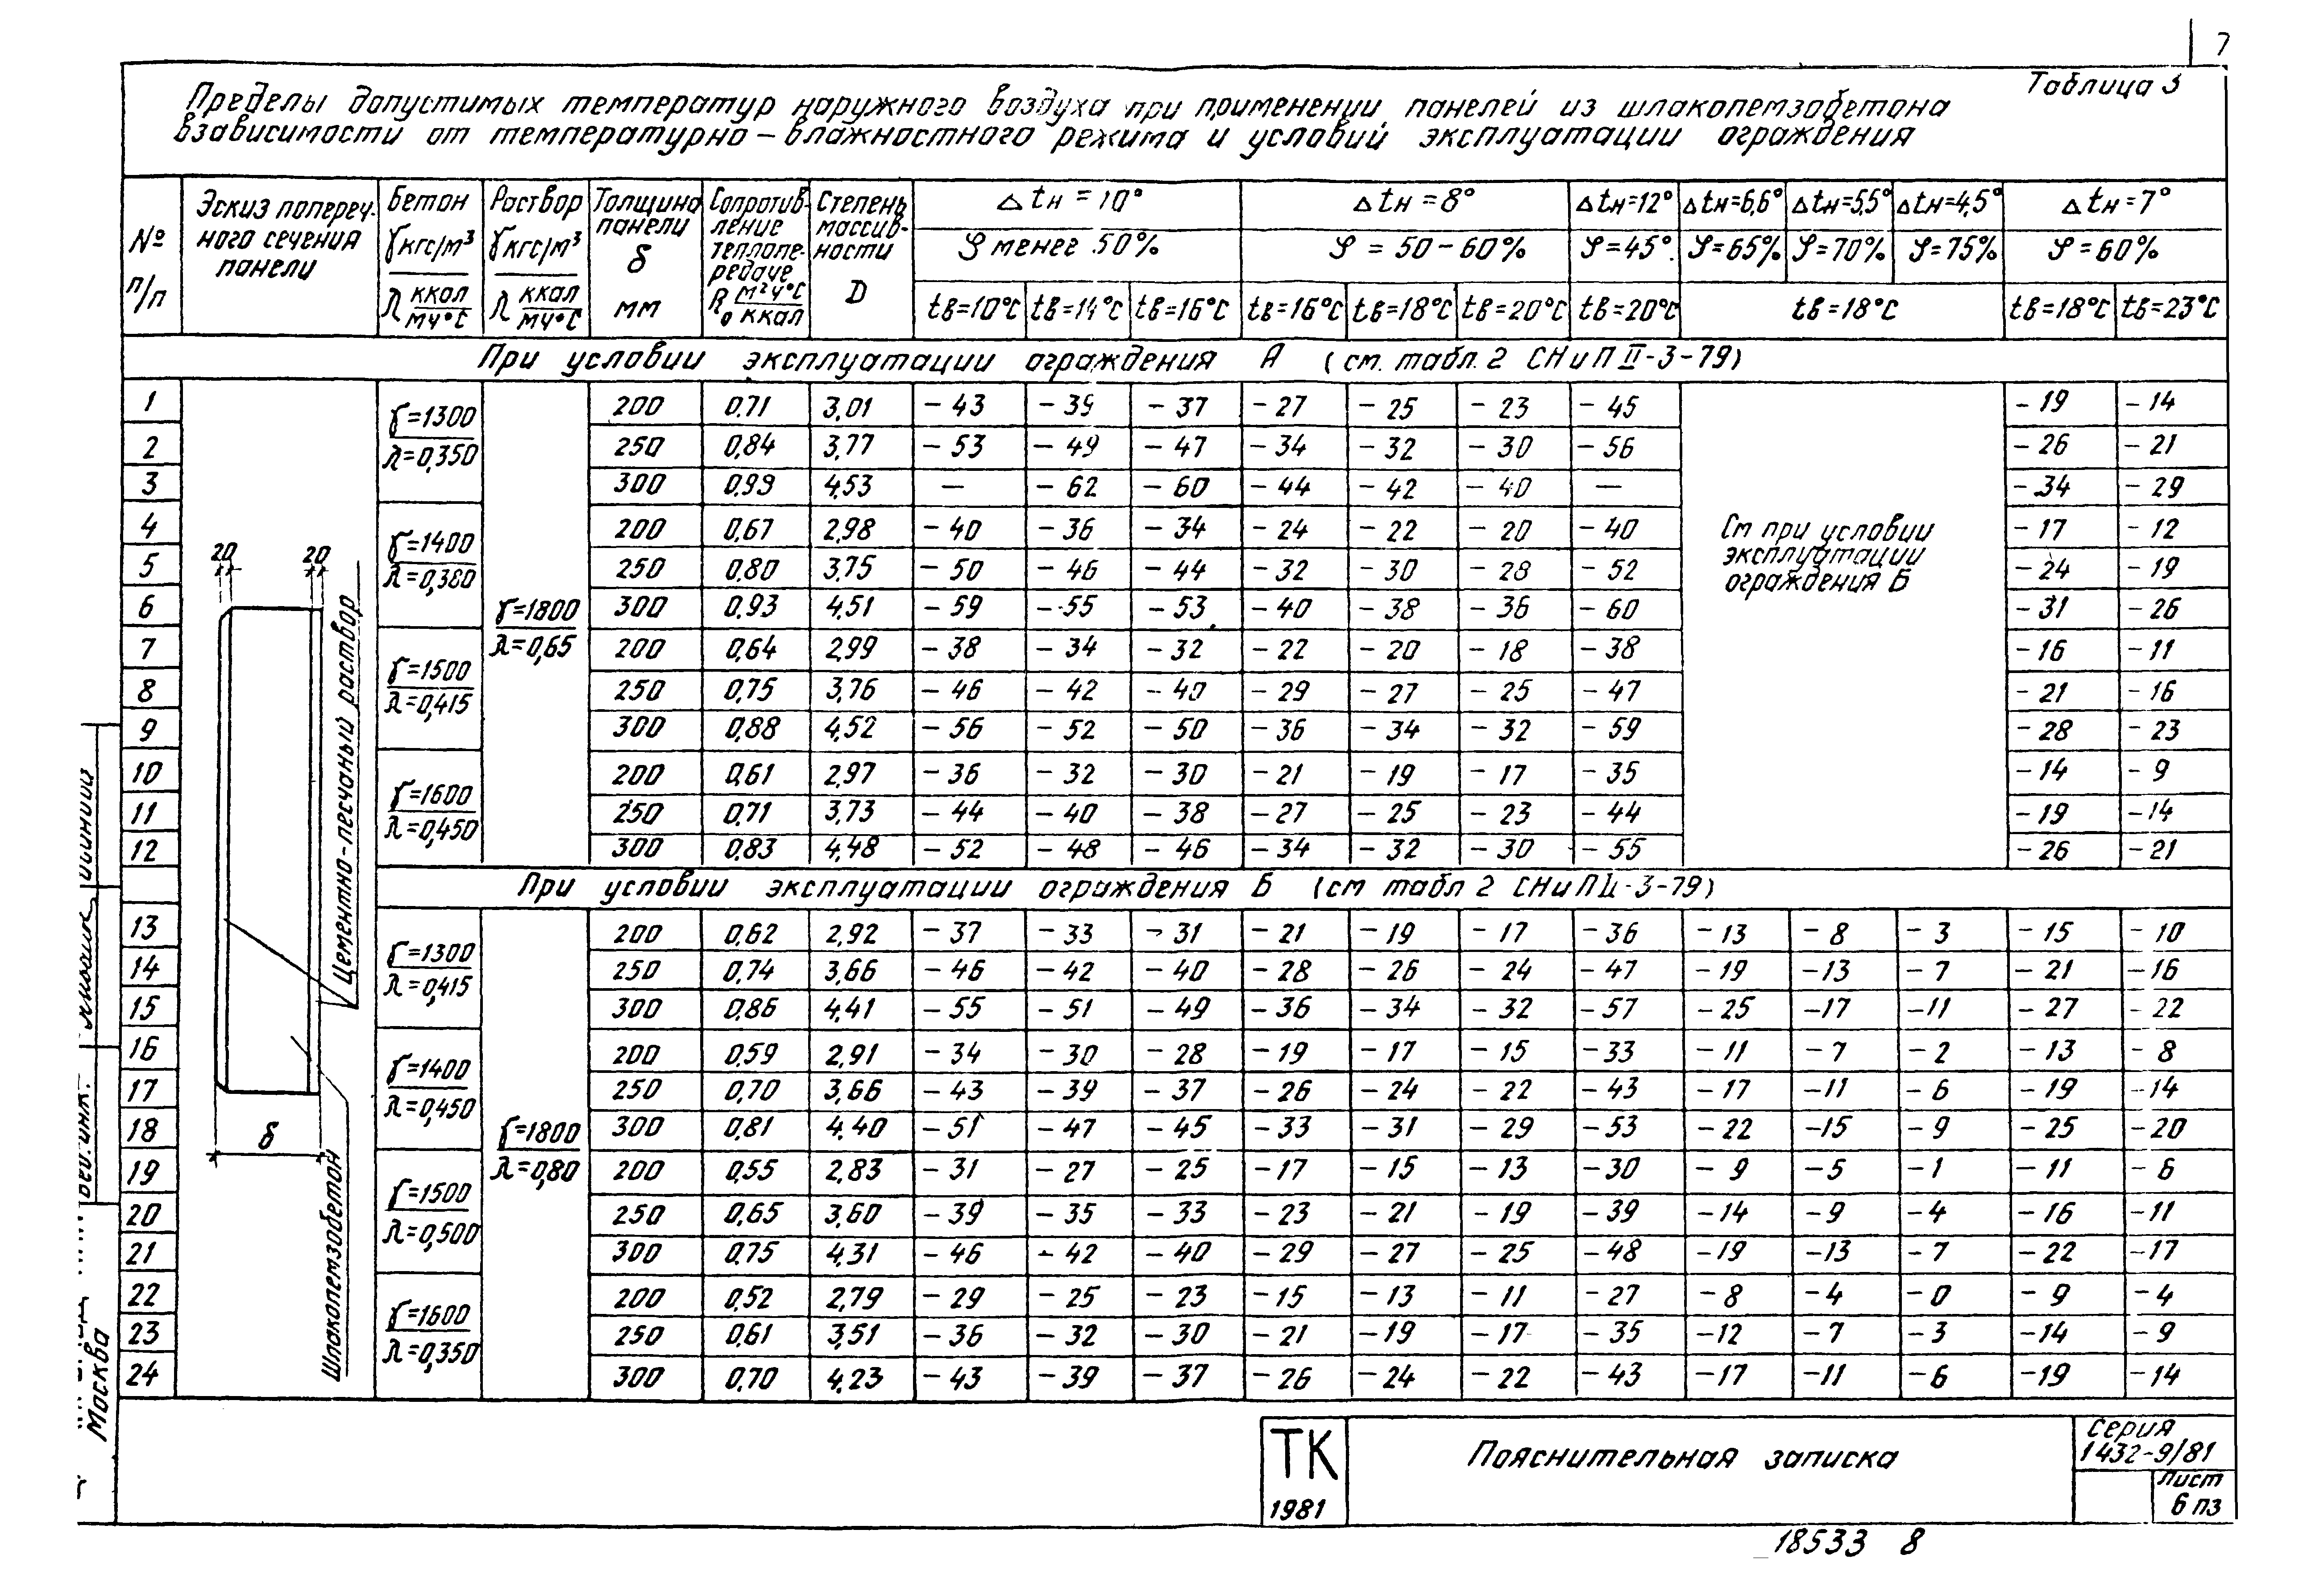 7
Таблица 3
Пределы допустимых температур наружного воздуха при применении панелей из шлакопемзобетона
в зависимости от температурно-влажностного режима и условий эксплуатации ограждения
№ п/п
Эскиз попереч-
ного сечения
панели
Бетон
γ кгс/м³
λ ккал/мч°С
Раствор
γ кгс/м³
λ ккал/мч°С
Толщина
панели
δ
мм
Сопротив-
ление
теплопе-
редаче
R₀ м²ч°С/ккал
Степень
массив-
ности
D
Δtн=10° Δtн=8° Δtн=12° Δtн=6,6° Δtн=5,5° Δtн=4,5° Δtн=7°
φ менее 50% φ=50-60% φ=45°. φ=65% φ=70% φ=75% φ=60%
tв=10°С tв=14°С tв=16°С tв=16°С tв=18°С tв=20°С tв=20°С tв=18°С tв=18°С tв=23°С
При условии эксплуатации ограждения А (см. табл. 2 СНиП II-3-79)
1 γ=1300 λ=0,350 γ=1800 λ=0,65 200 0,71 3,01 -43 -39 -37 -27 -25 -23 -45 -19 -14
2 250 0,84 3,77 -53 -49 -47 -34 -32 -30 -56 -26 -21
3 300 0,99 4,53 — -62 -60 -44 -42 -40 — -34 -29
4 γ=1400 λ=0,380 200 0,67 2,98 -40 -36 -34 -24 -22 -20 -40 -17 -12
5 250 0,80 3,75 -50 -46 -44 -32 -30 -28 -52 -24 -19
6 300 0,93 4,51 -59 -55 -53 -40 -38 -36 -60 -31 -26
7 γ=1500 λ=0,415 200 0,64 2,99 -38 -34 -32 -22 -20 -18 -38 -16 -11
8 250 0,75 3,76 -46 -42 -40 -29 -27 -25 -47 -21 -16
9 300 0,88 4,52 -56 -52 -50 -36 -34 -32 -59 -28 -23
10 γ=1600 λ=0,450 200 0,61 2,97 -36 -32 -30 -21 -19 -17 -35 -14 -9
11 250 0,71 3,73 -44 -40 -38 -27 -25 -23 -44 -19 -14
12 300 0,83 4,48 -52 -48 -46 -34 -32 -30 -55 -26 -21
См при условии
эксплуатации
ограждения Б
При условии эксплуатации ограждения Б (см табл 2 СНиП II-3-79)
13 γ=1300 λ=0,415 γ=1800 λ=0,80 200 0,62 2,92 -37 -33 -31 -21 -19 -17 -36 -13 -8 -3 -15 -10
14 250 0,74 3,66 -46 -42 -40 -28 -26 -24 -47 -19 -13 -7 -21 -16
15 300 0,86 4,41 -55 -51 -49 -36 -34 -32 -57 -25 -17 -11 -27 -22
16 γ=1400 λ=0,450 200 0,59 2,91 -34 -30 -28 -19 -17 -15 -33 -11 -7 -2 -13 -8
17 250 0,70 3,66 -43 -39 -37 -26 -24 -22 -43 -17 -11 -6 -19 -14
18 300 0,81 4,40 -51 -47 -45 -33 -31 -29 -53 -22 -15 -9 -25 -20
19 γ=1500 λ=0,500 200 0,55 2,83 -31 -27 -25 -17 -15 -13 -30 -9 -5 -1 -11 -6
20 250 0,65 3,60 -39 -35 -33 -23 -21 -19 -39 -14 -9 -4 -16 -11
21 300 0,75 4,31 -46 -42 -40 -29 -27 -25 -48 -19 -13 -7 -22 -17
22 γ=1600 λ=0,350 200 0,52 2,79 -29 -25 -23 -15 -13 -11 -27 -8 -4 -0 -9 -4
23 250 0,61 3,51 -36 -32 -30 -21 -19 -17 -35 -12 -7 -3 -14 -9
24 300 0,70 4,23 -43 -39 -37 -26 -24 -22 -43 -17 -11 -6 -19 -14
20 20
Цементно-песчаный раствор
δ
Шлакопемзобетон
Москва
ТК
1981
Пояснительная записка
серия
1 432-9/81
Лист
6 пз
18533 8